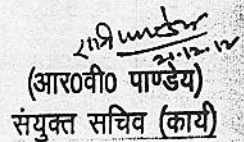 (आर0वी0 पाण्डेय)
संयुक्त सचिव (कार्य)